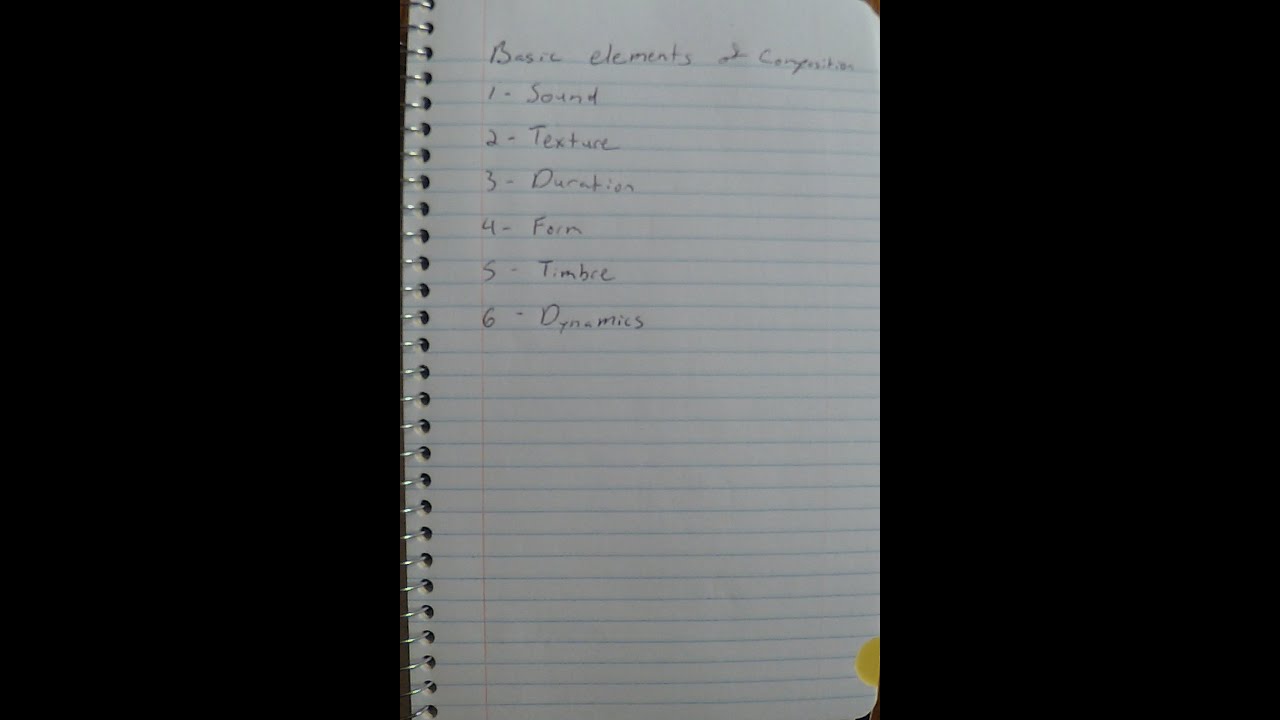 Basic elements of Composition
1- Sound
2- Texture
3- Duration
4- Form
5- Timbre
6- Dynamics